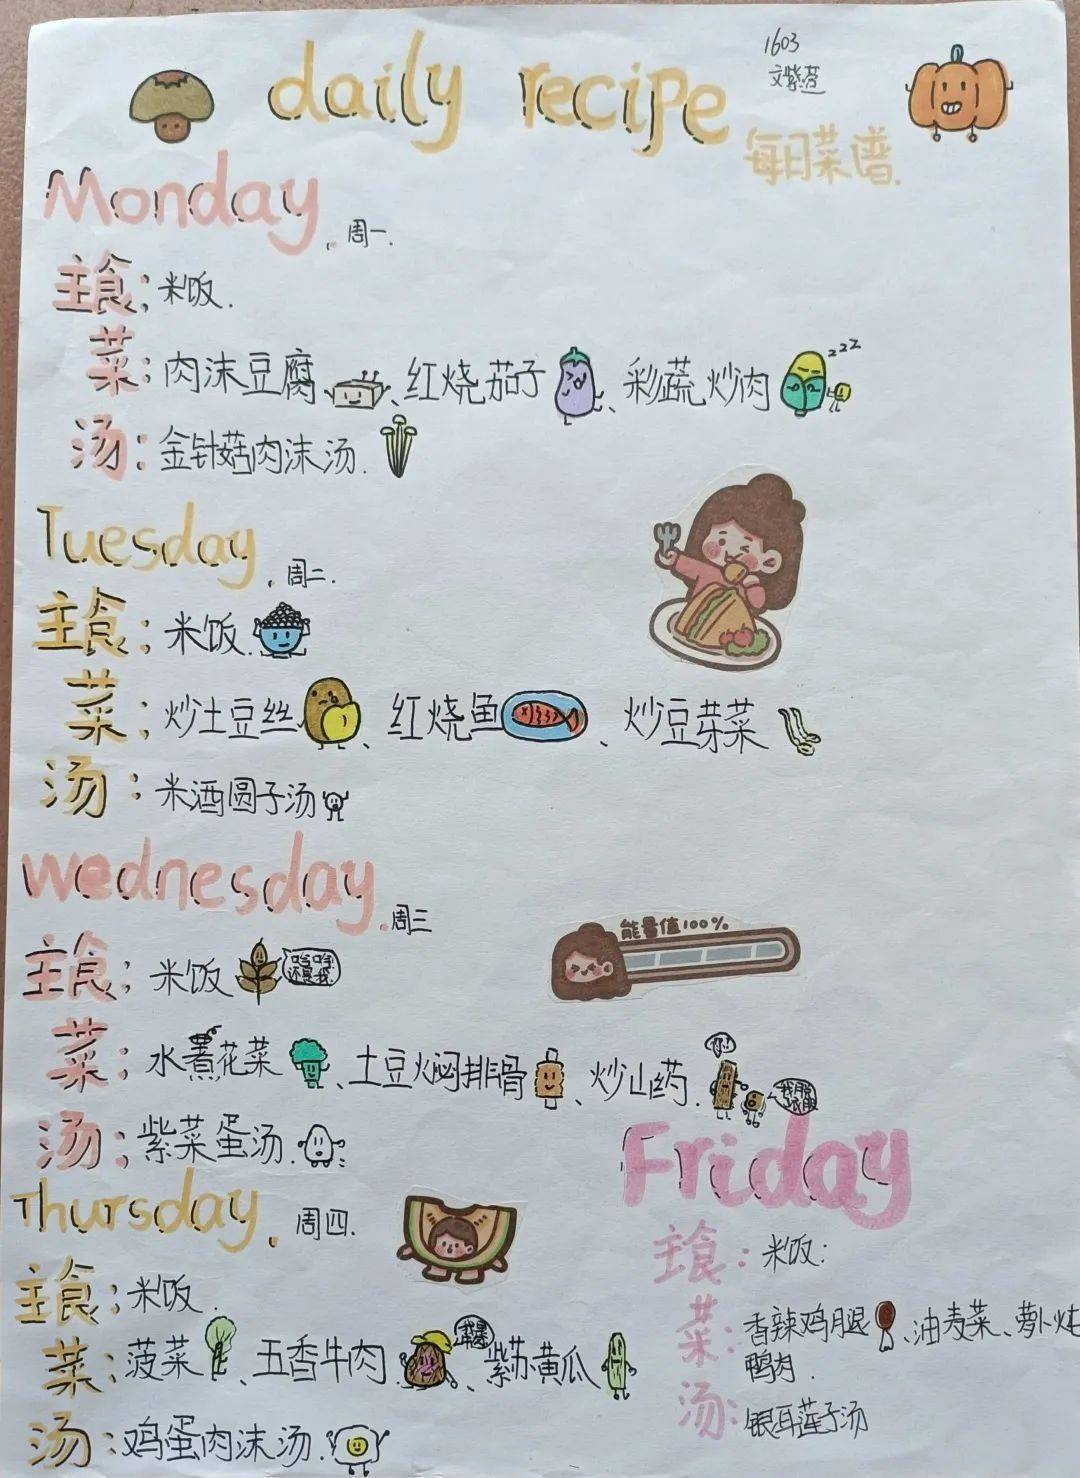 1603
daily recipe
每日菜谱.
Monday. 周一.
主食: 米饭.
菜: 肉沫豆腐、红烧茄子、彩蔬炒肉
zzz
汤: 金针菇肉沫汤.
Tuesday. 周二.
主食: 米饭.
菜: 炒土豆丝、红烧鱼、炒豆芽菜
汤: 米酒圆子汤
Wednesday. 周三
能量值100%
主食: 米饭
哈哈还是我
菜: 水煮花菜、土豆焖排骨、炒山药.
汤: 紫菜蛋汤.
Thursday. 周四.
主食: 米饭.
菜: 菠菜、五香牛肉、紫苏黄瓜
汤: 鸡蛋肉沫汤.
Friday
主食: 米饭:
菜: 香辣鸡腿、油麦菜、萝卜炖
鸭肉.
汤: 银耳莲子汤